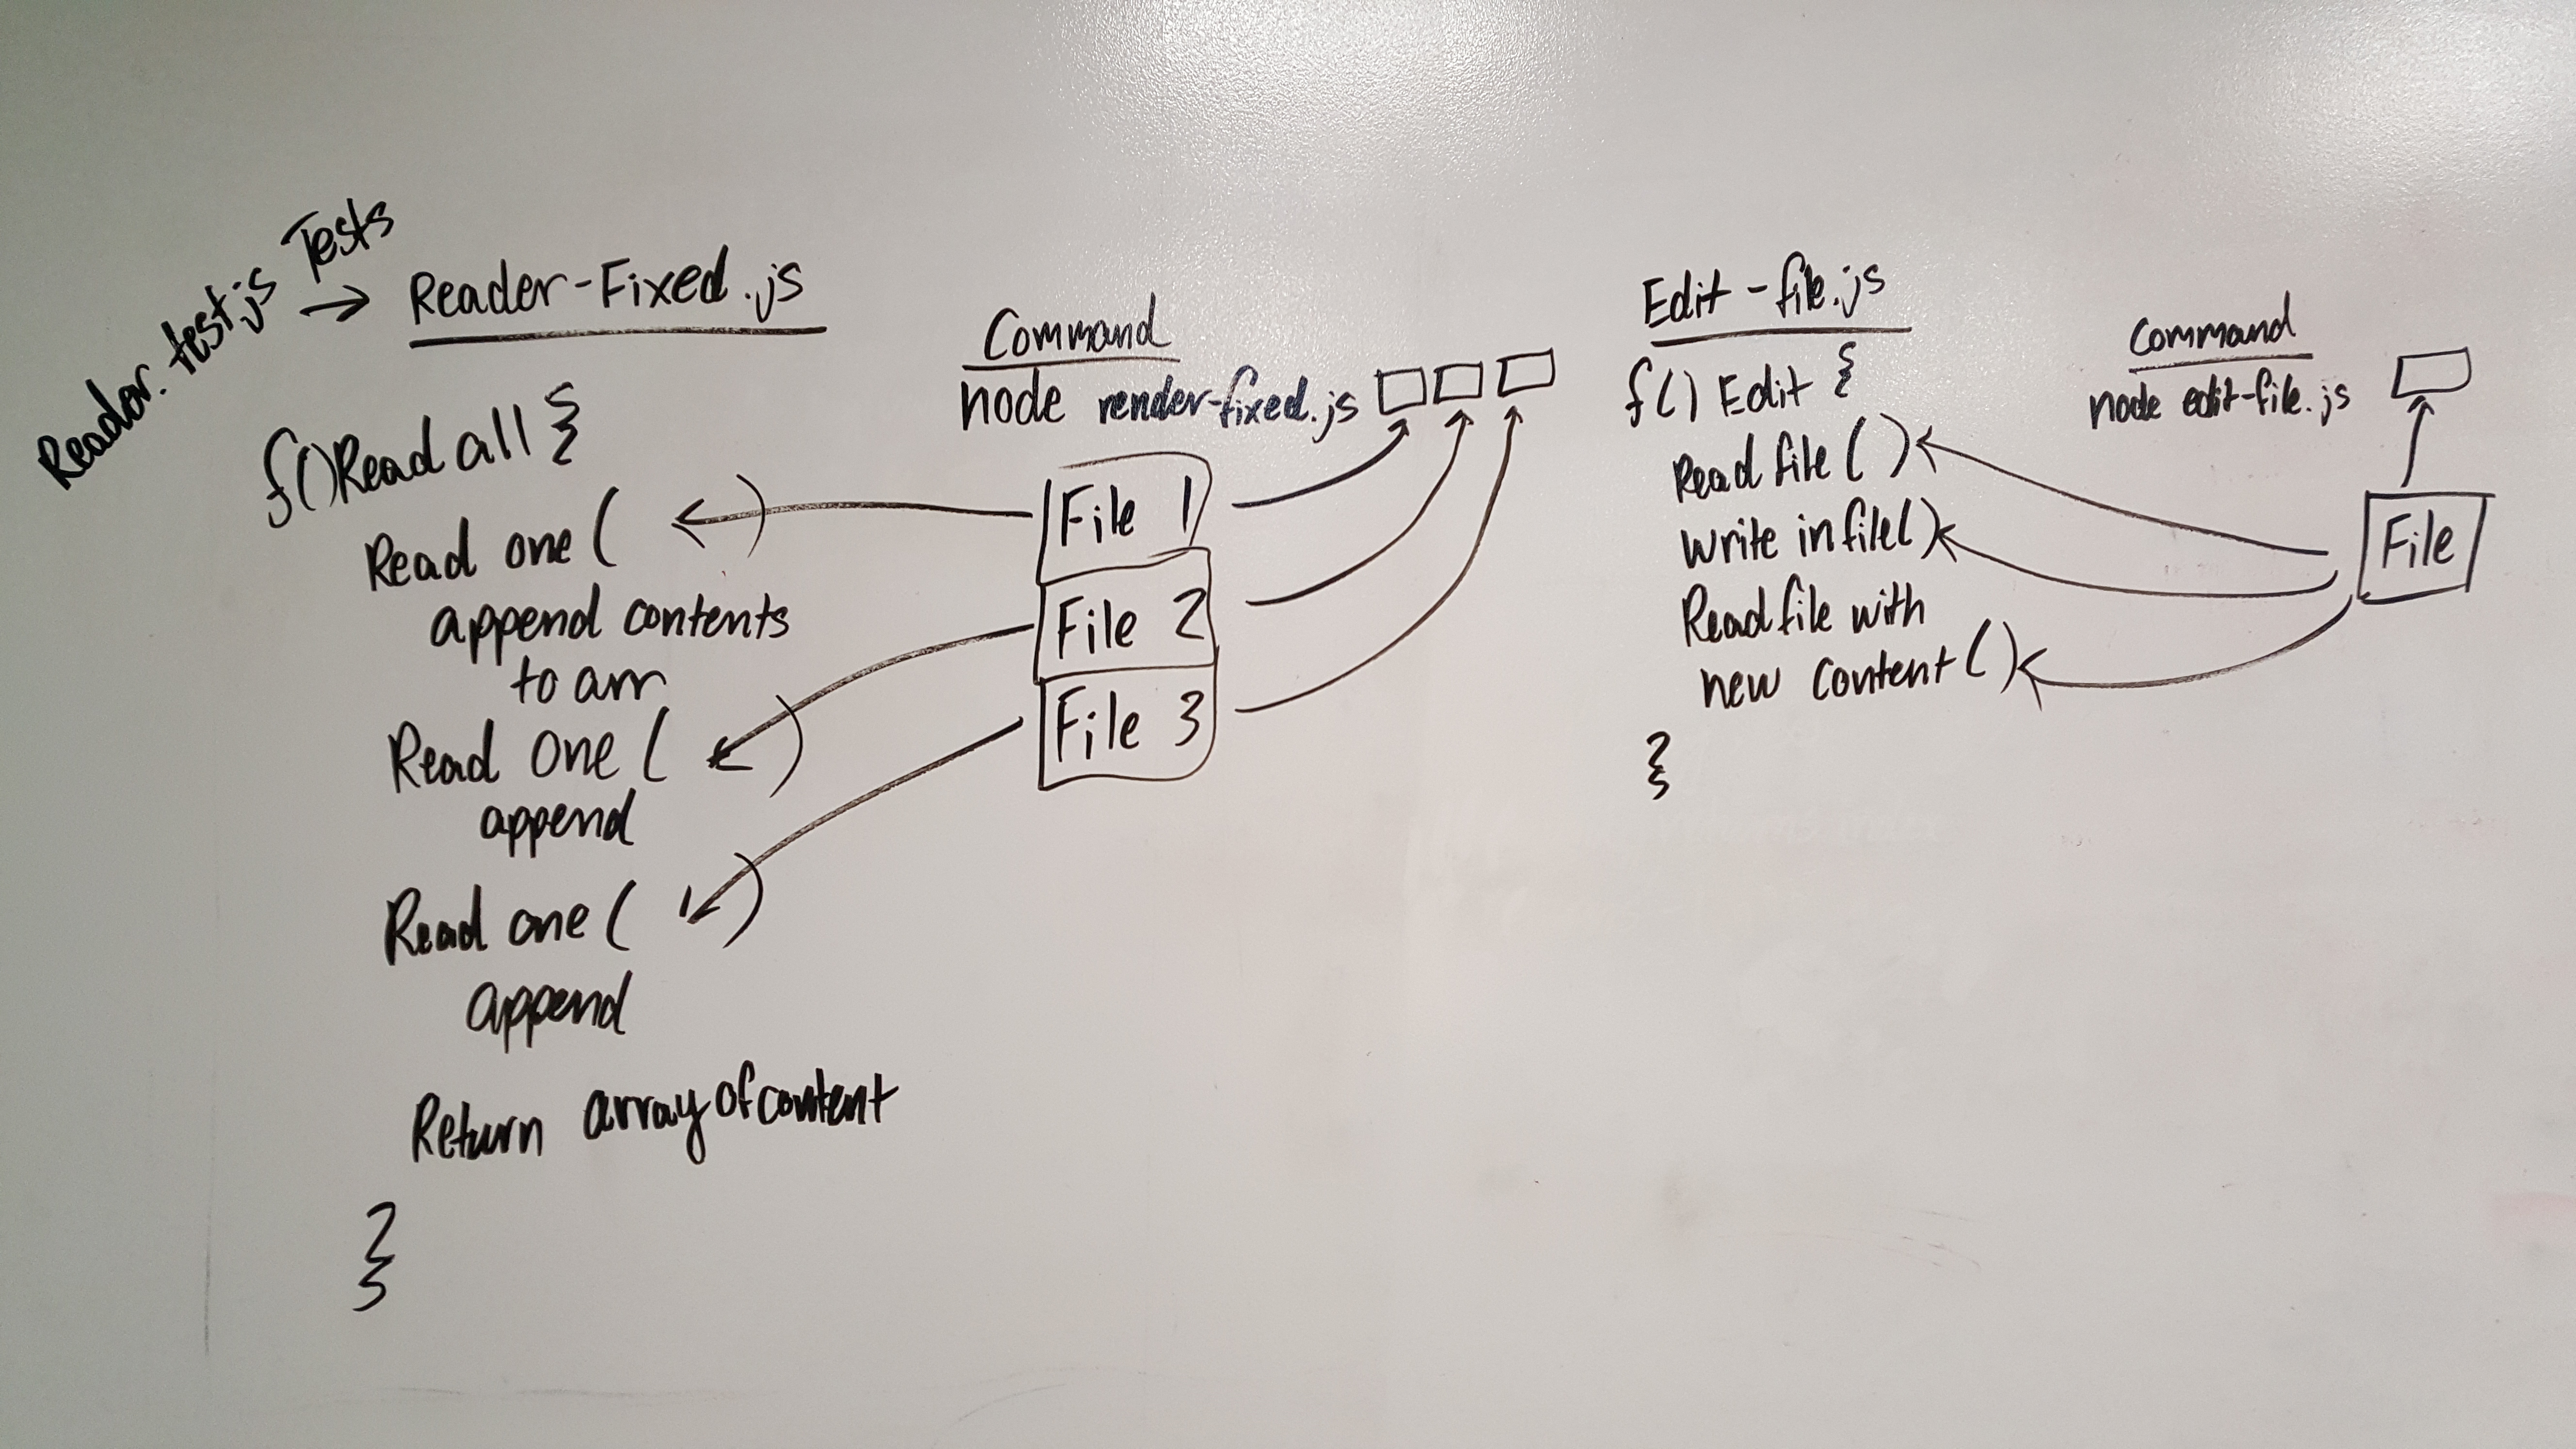 Reader.test.js Tests
→ Reader-Fixed.js
f() Read all {
Read one ( )
append contents
to arr
Read one ( )
append
Read one ( )
append
Return array of content
}
Command
node render-fixed.js
File 1
File 2
File 3
Edit-file.js
f() Edit {
Read file ( )
write in file( )
Read file with
new content ( )
}
Command
node edit-file.js
File